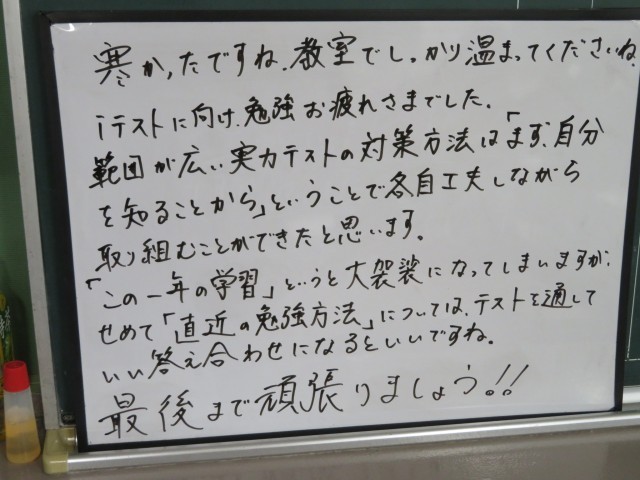 寒かったですね。教室でしっかり温まってくださいね。
iテストに向け、勉強お疲れさまでした。
範囲が広い実力テストの対策方法は「まず、自分
を知ることから」ということで各自工夫しながら
取り組むことができたと思います。
「この一年の学習」というと大袈裟になってしまいますが、
せめて「直近の勉強方法」については、テストを通して
いい答え合わせになるといいですね。
最後まで頑張りましょう!!